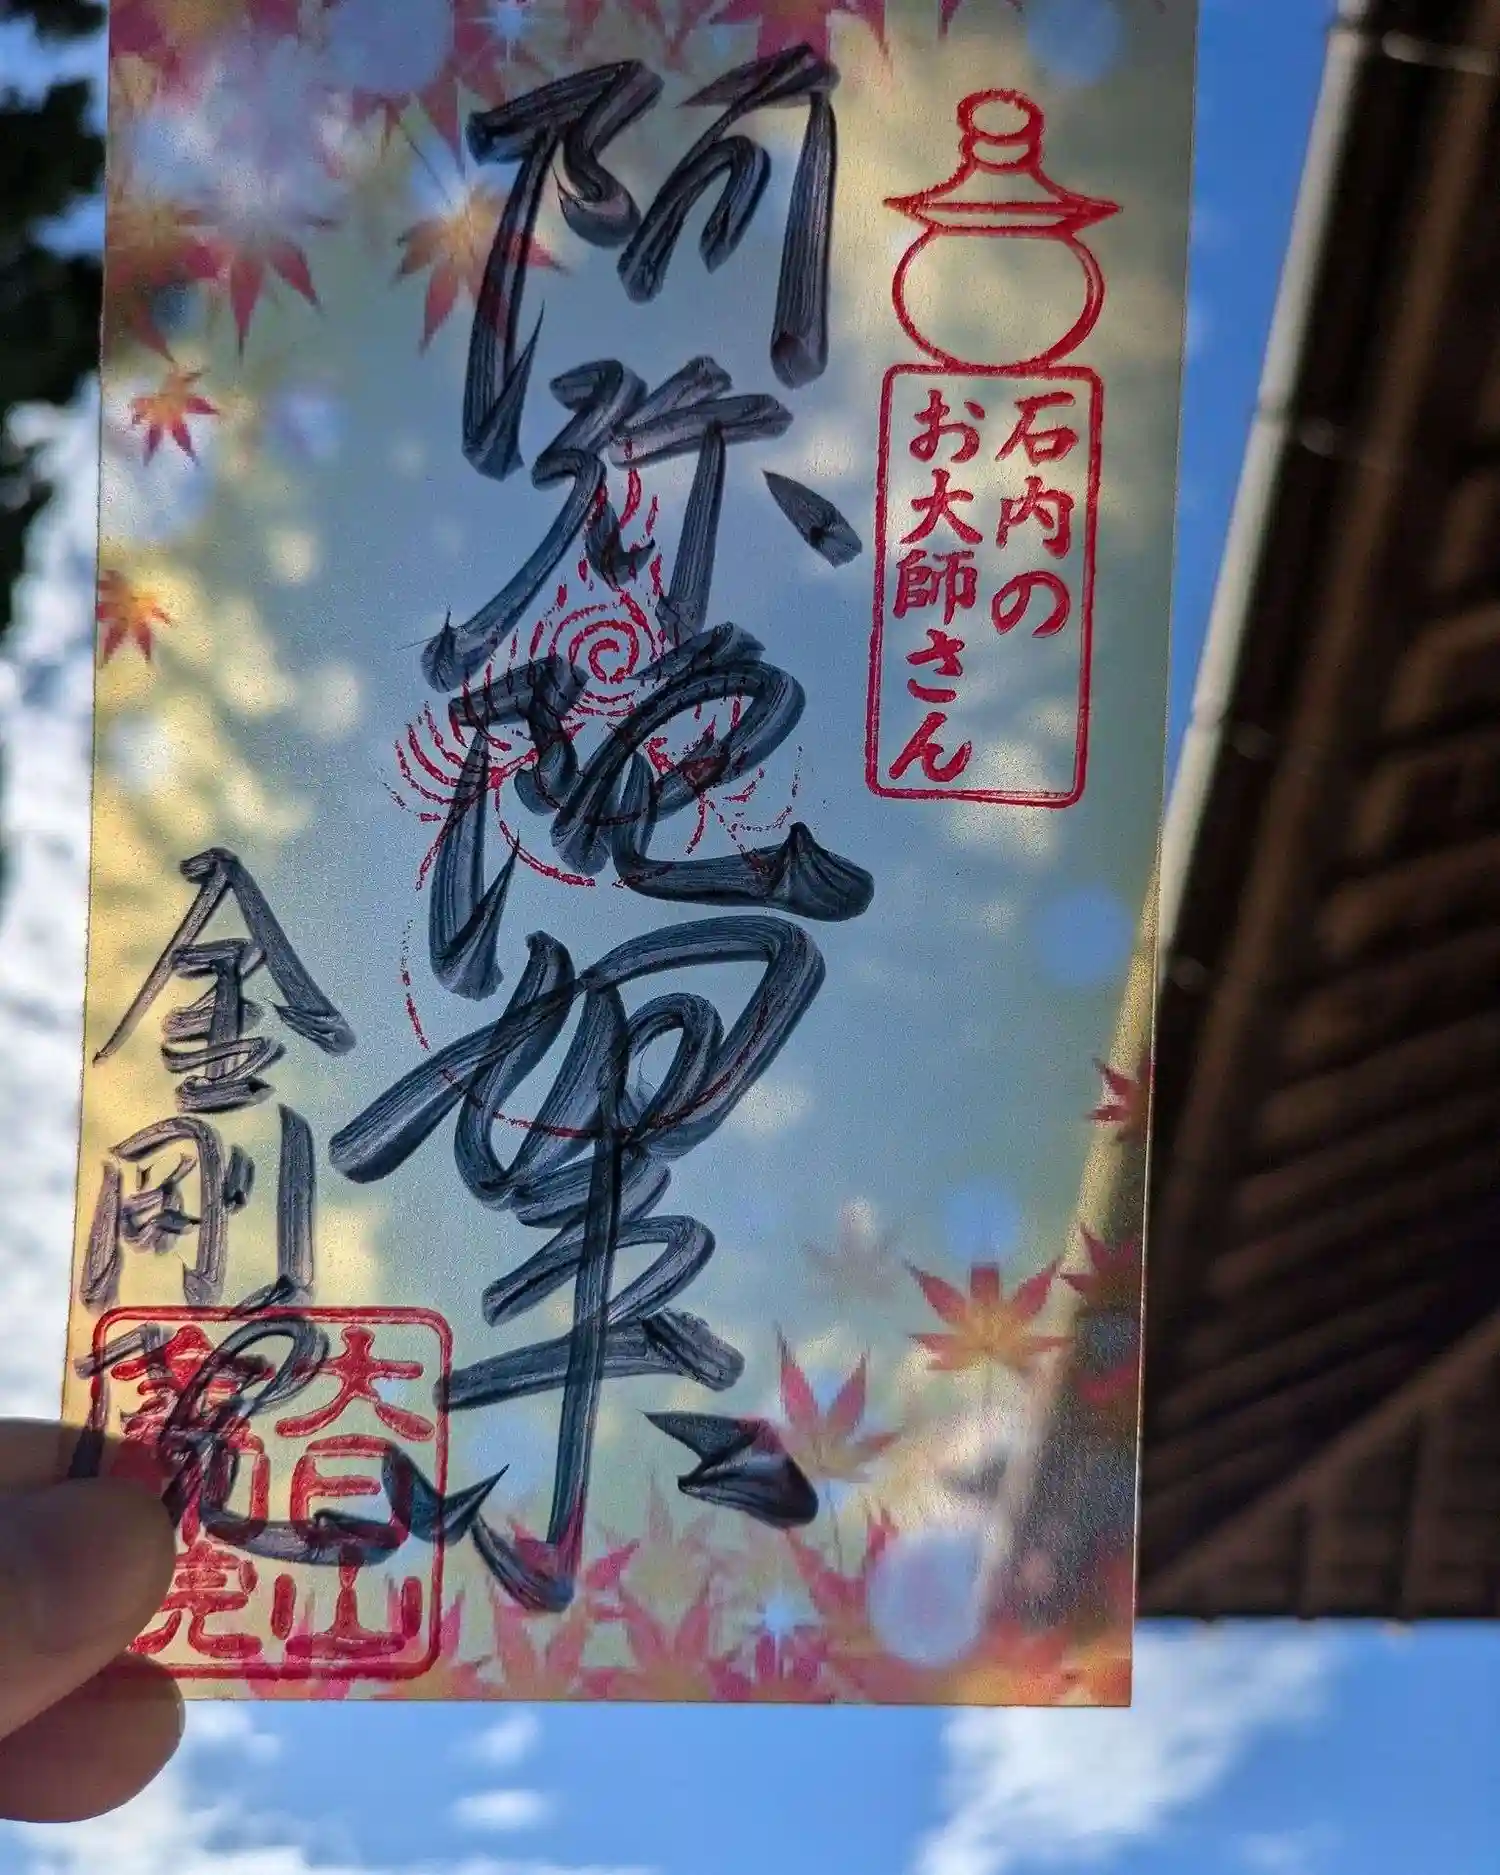 石内の
お大師さん
阿弥陀如来
金剛院
大日山